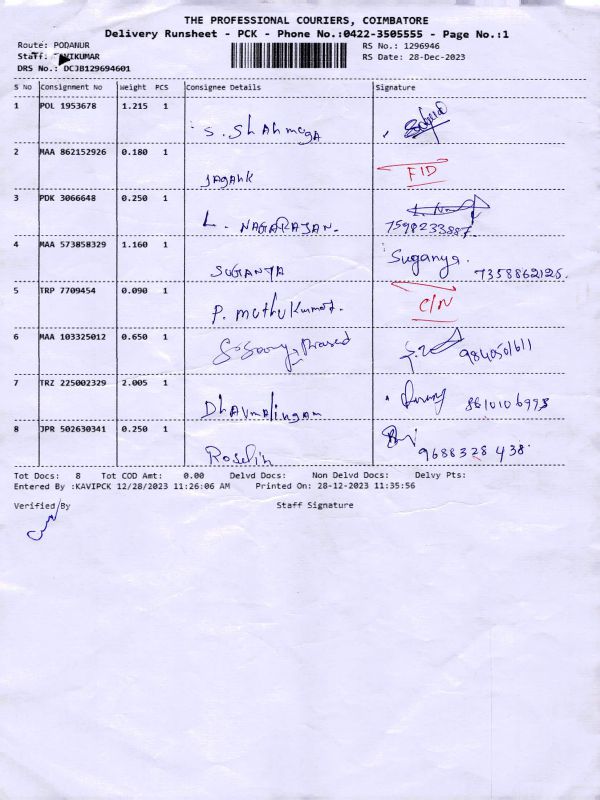 THE PROFESSIONAL COURIERS, COIMBATORE
Delivery Runsheet - PCK - Phone No.:0422-3505555 - Page No.:1
Route: PODANUR RS No.: 1296946
Staff: RS Date: 28-Dec-2023
DRS No.: DCJB129694601
S No Consignment No Weight PCS Consignee Details Signature
1 POL 1953678 1.215 1
S. Shahmega
2 MAA 862152926 0.180 1
Jagank FID
3 PDK 3066648 0.250 1
L. NAGARAJAN. 7598233887.
4 MAA 573858329 1.160 1 Suganya.
SUGANYA 7358862126.
5 TRP 7709454 0.090 1 C/N
P. muthukumar.
6 MAA 103325012 0.650 1
9840501611
7 TRZ 225002329 2.005 1
Dhavmalingam 8610106993
8 JPR 502630341 0.250 1
Roselin 9688328438.
Tot Docs: 8 Tot COD Amt: 0.00 Delvd Docs: Non Delvd Docs: Delvy Pts:
Entered By :KAVIPCK 12/28/2023 11:26:06 AM Printed On: 28-12-2023 11:35:56
Verified By Staff Signature